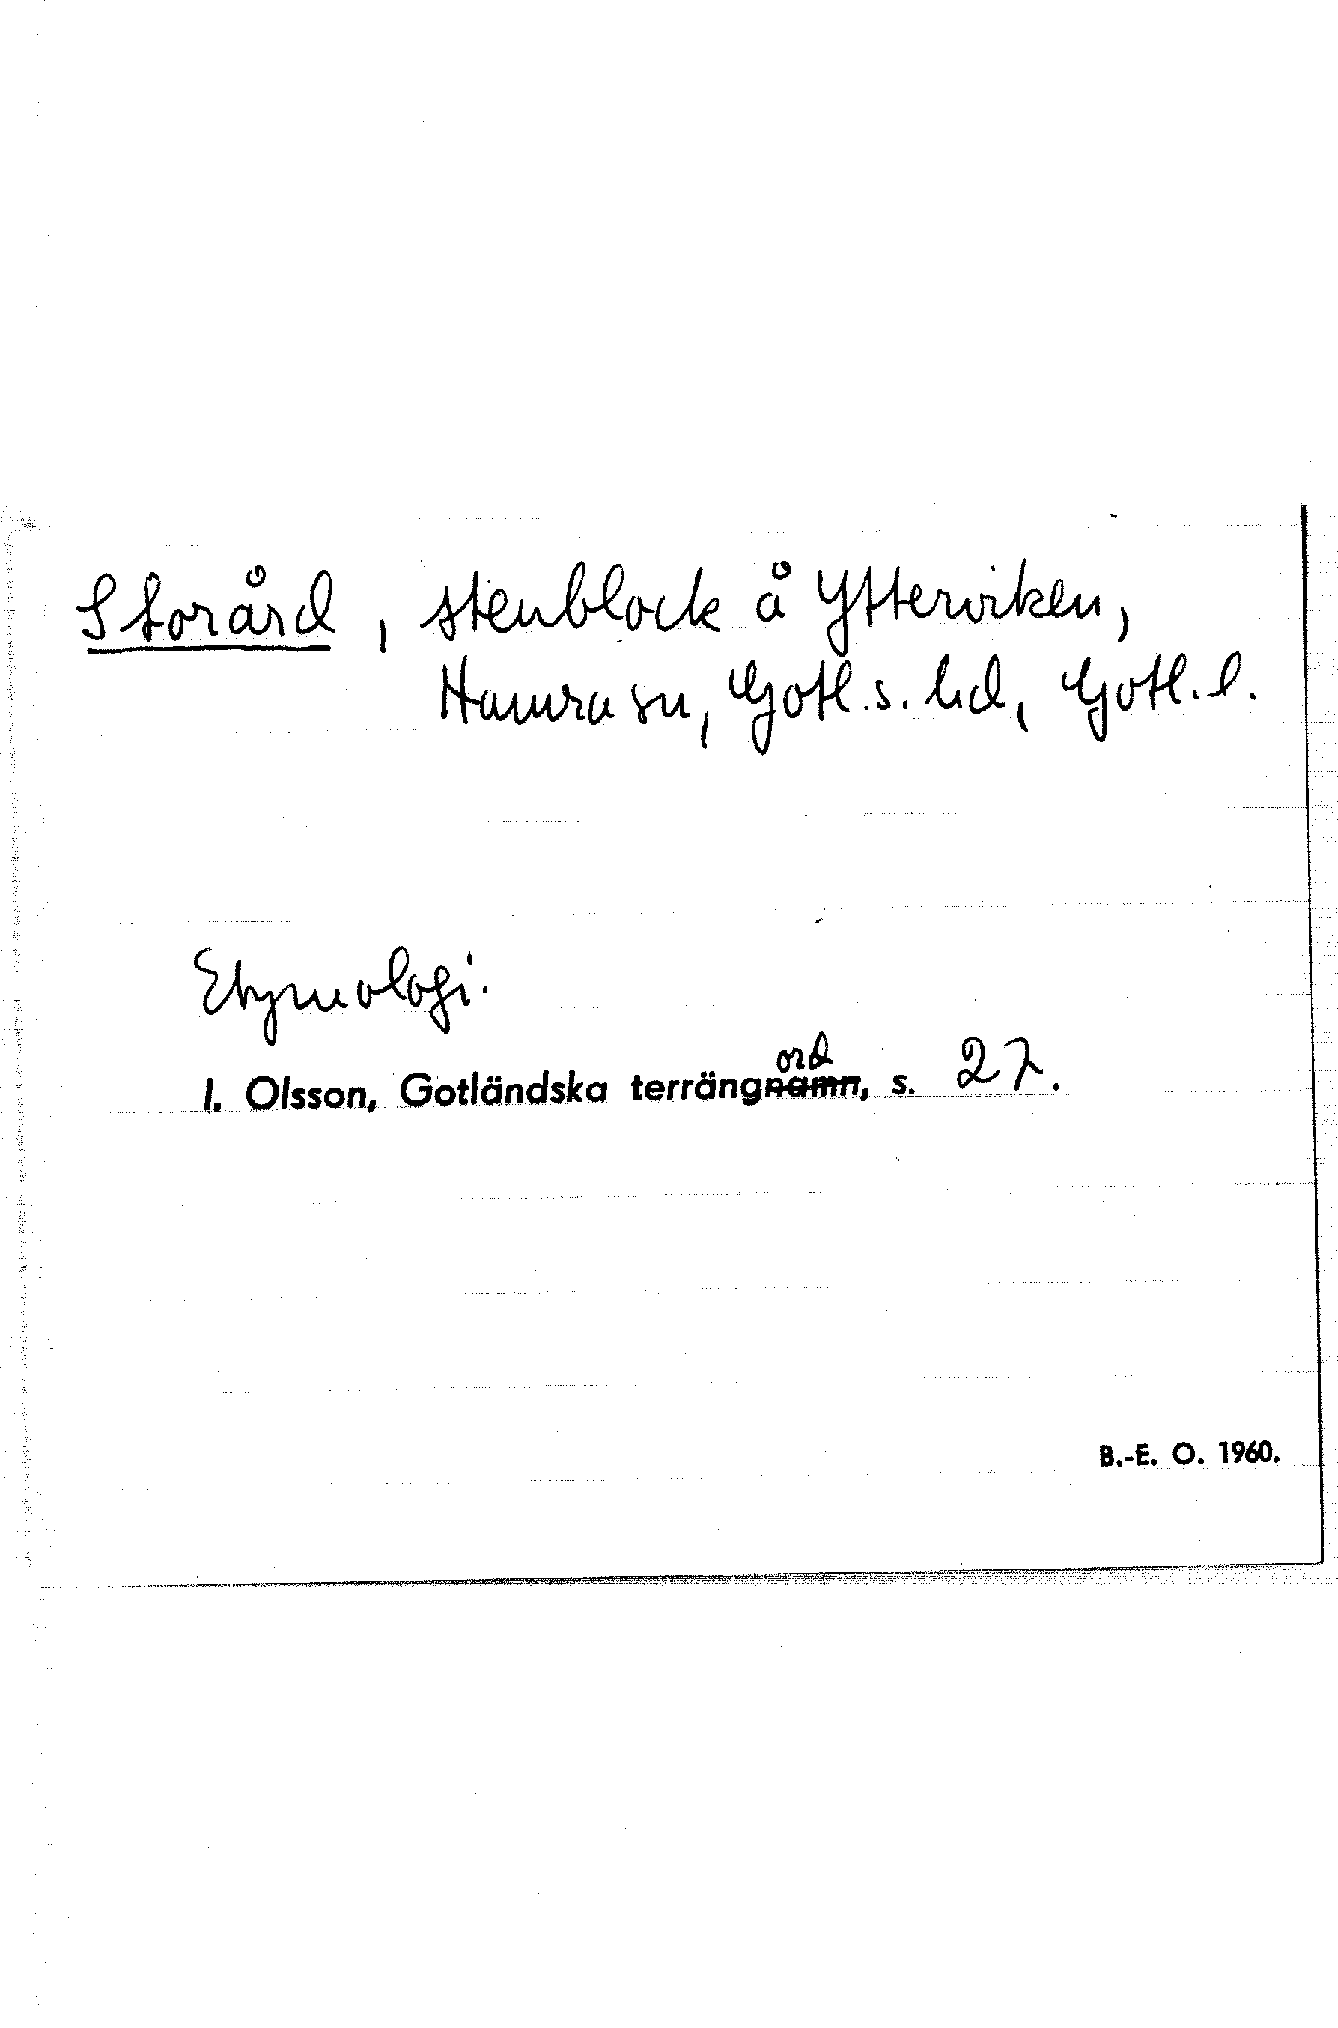 Storård, stenblock å Ytterviken,
Hamra sn, Gotl. s. hd, Gotl. l.
Etymologi.
ord
I. Olsson, Gotländska terrängnamn, s. 27.
B.-E. O. 1960.